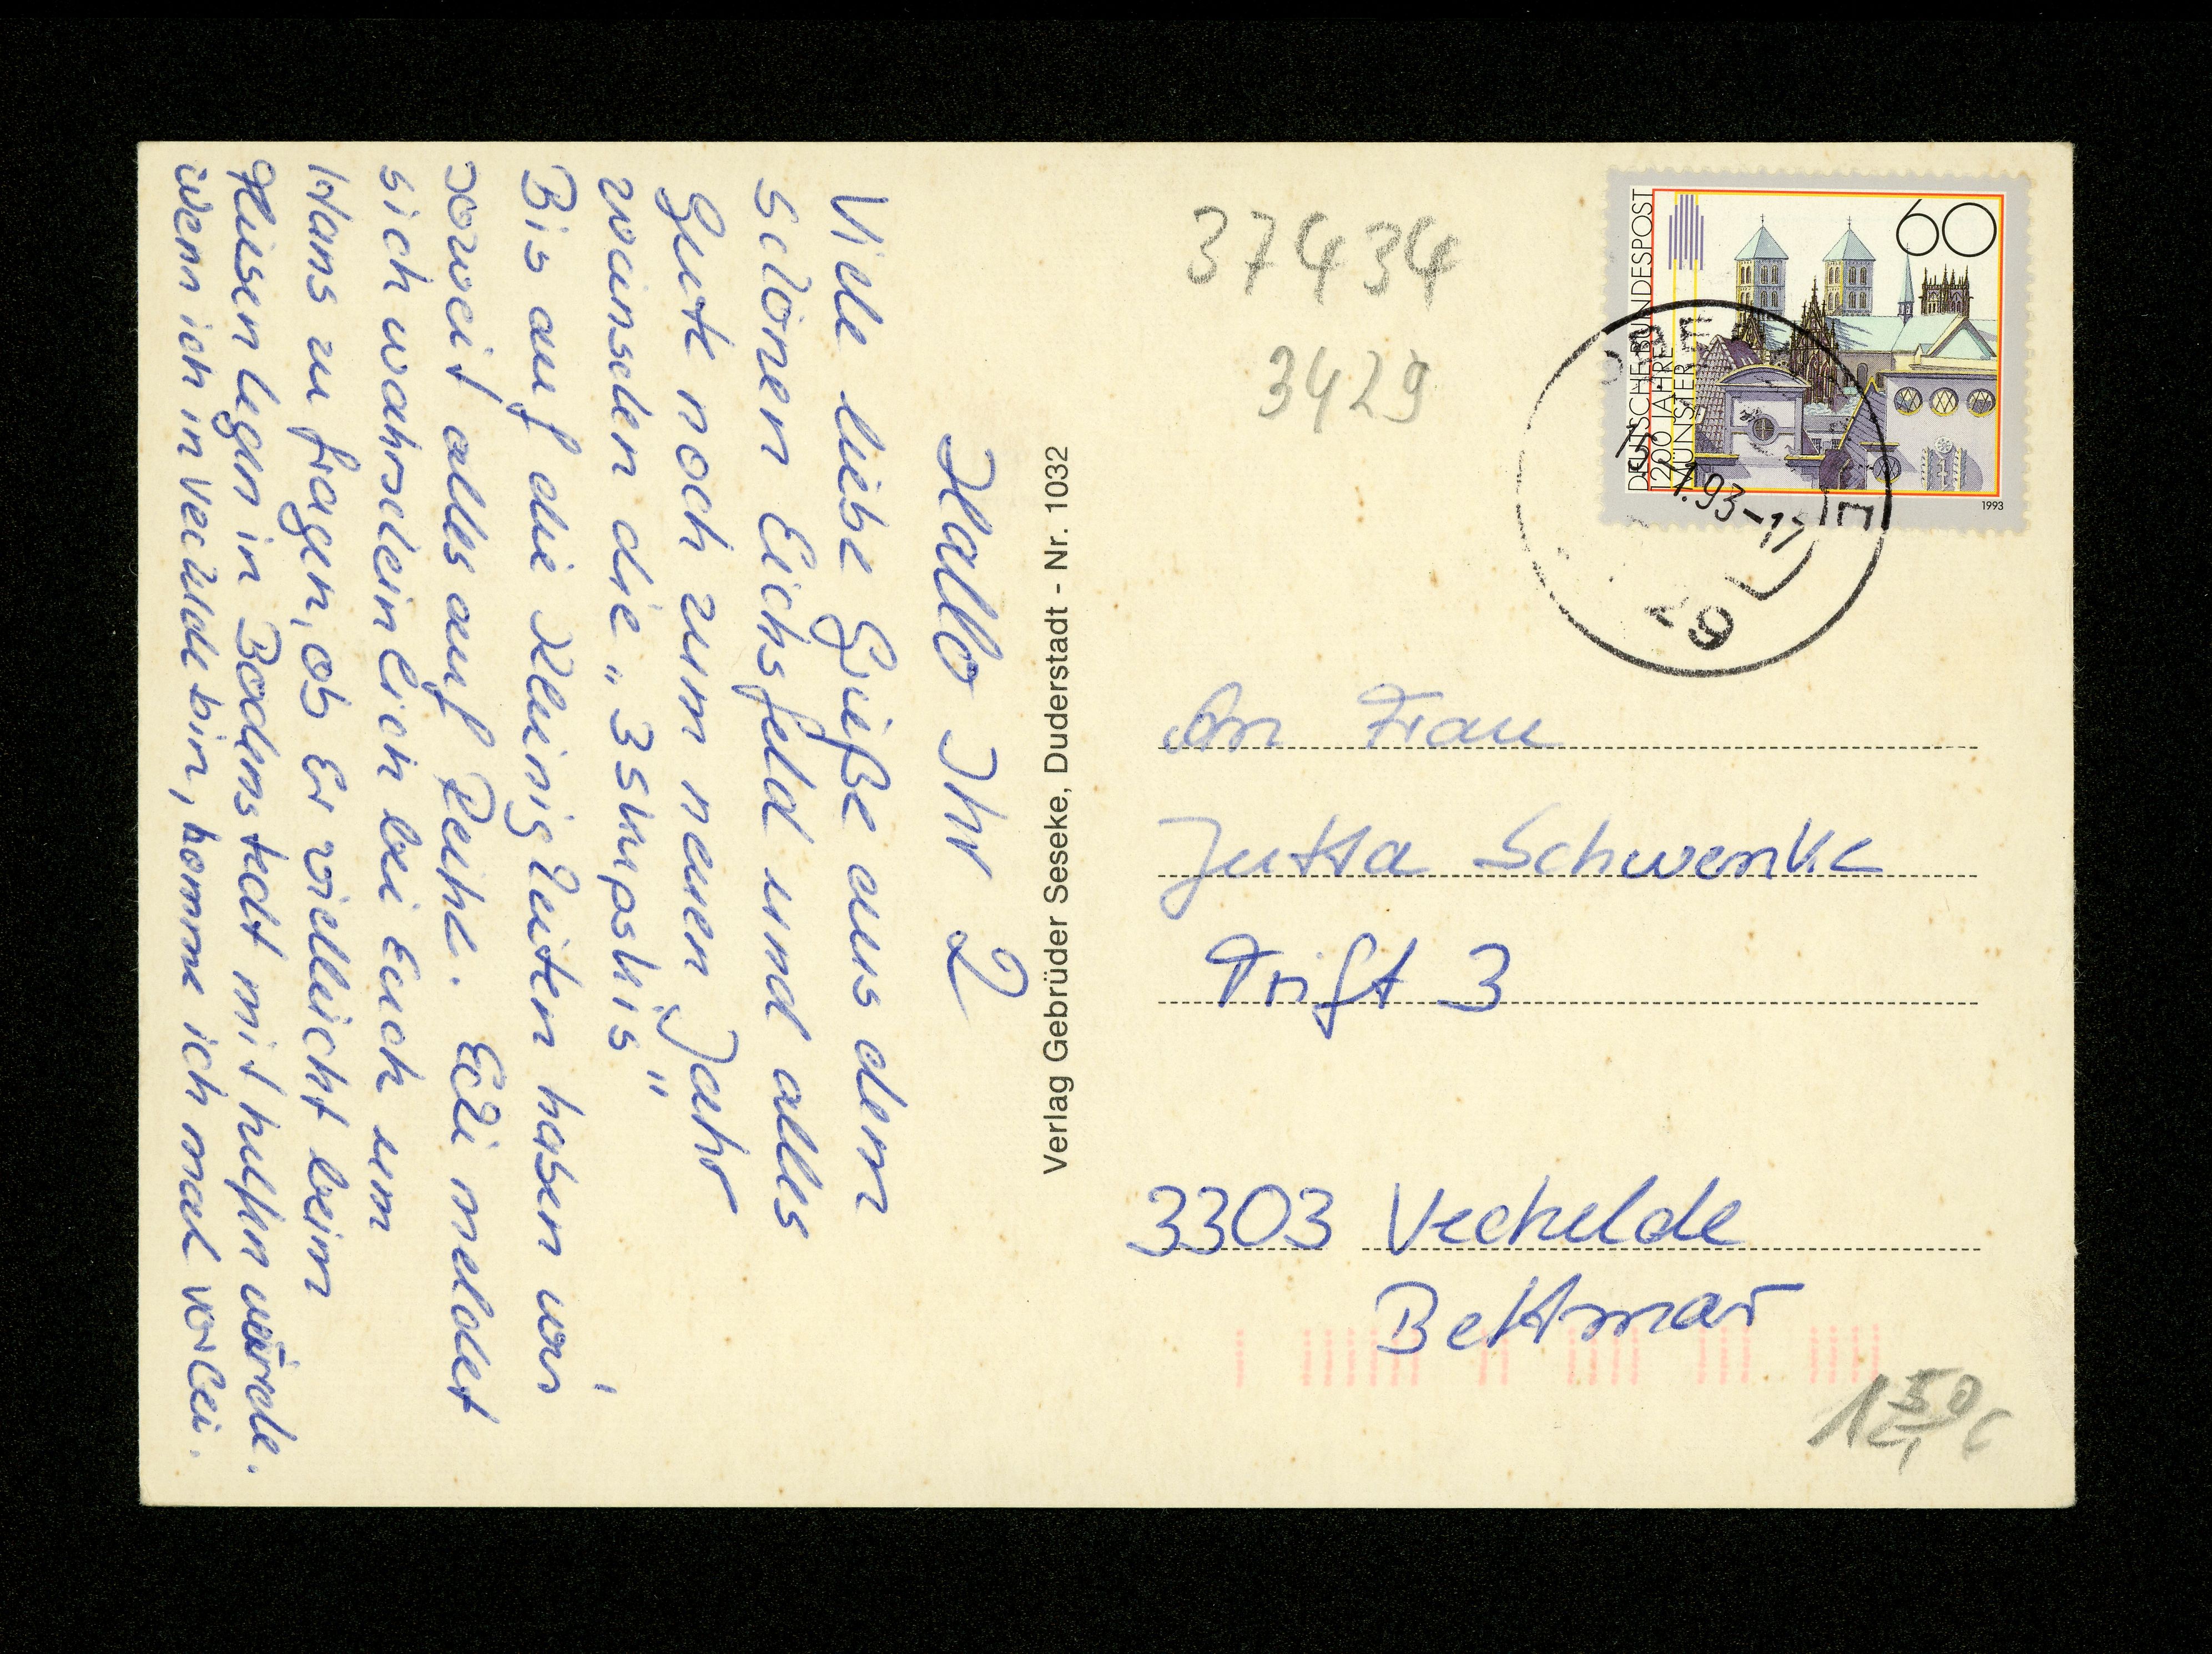 Hallo Ihr 2
Viele liebe Grüße aus dem
schönen Eichsfeld und alles
Gute noch zum neuen Jahr
wünschen die „3 Skupskis“
Bis auf die Kleinigkeiten haben wir
soweit alles auf Reihe. Ecki meldet
sich wahrscheinlich bei Euch um
Hans zu fragen, ob Er vielleicht beim
fliesen legen in Bodenstedt mit helfen würde.
wenn ich in Vechelde bin, komme ich mal vorbei.
Verlag Gebrüder Seseke, Duderstadt - Nr. 1032
37434
3429
60
DEUTSCHE BUNDESPOST
1200 JAHRE
MÜNSTER
1993
1.93-17
An Frau
Jutta Schwenke
Trift 3
3303 Vechelde
Bettmar
150